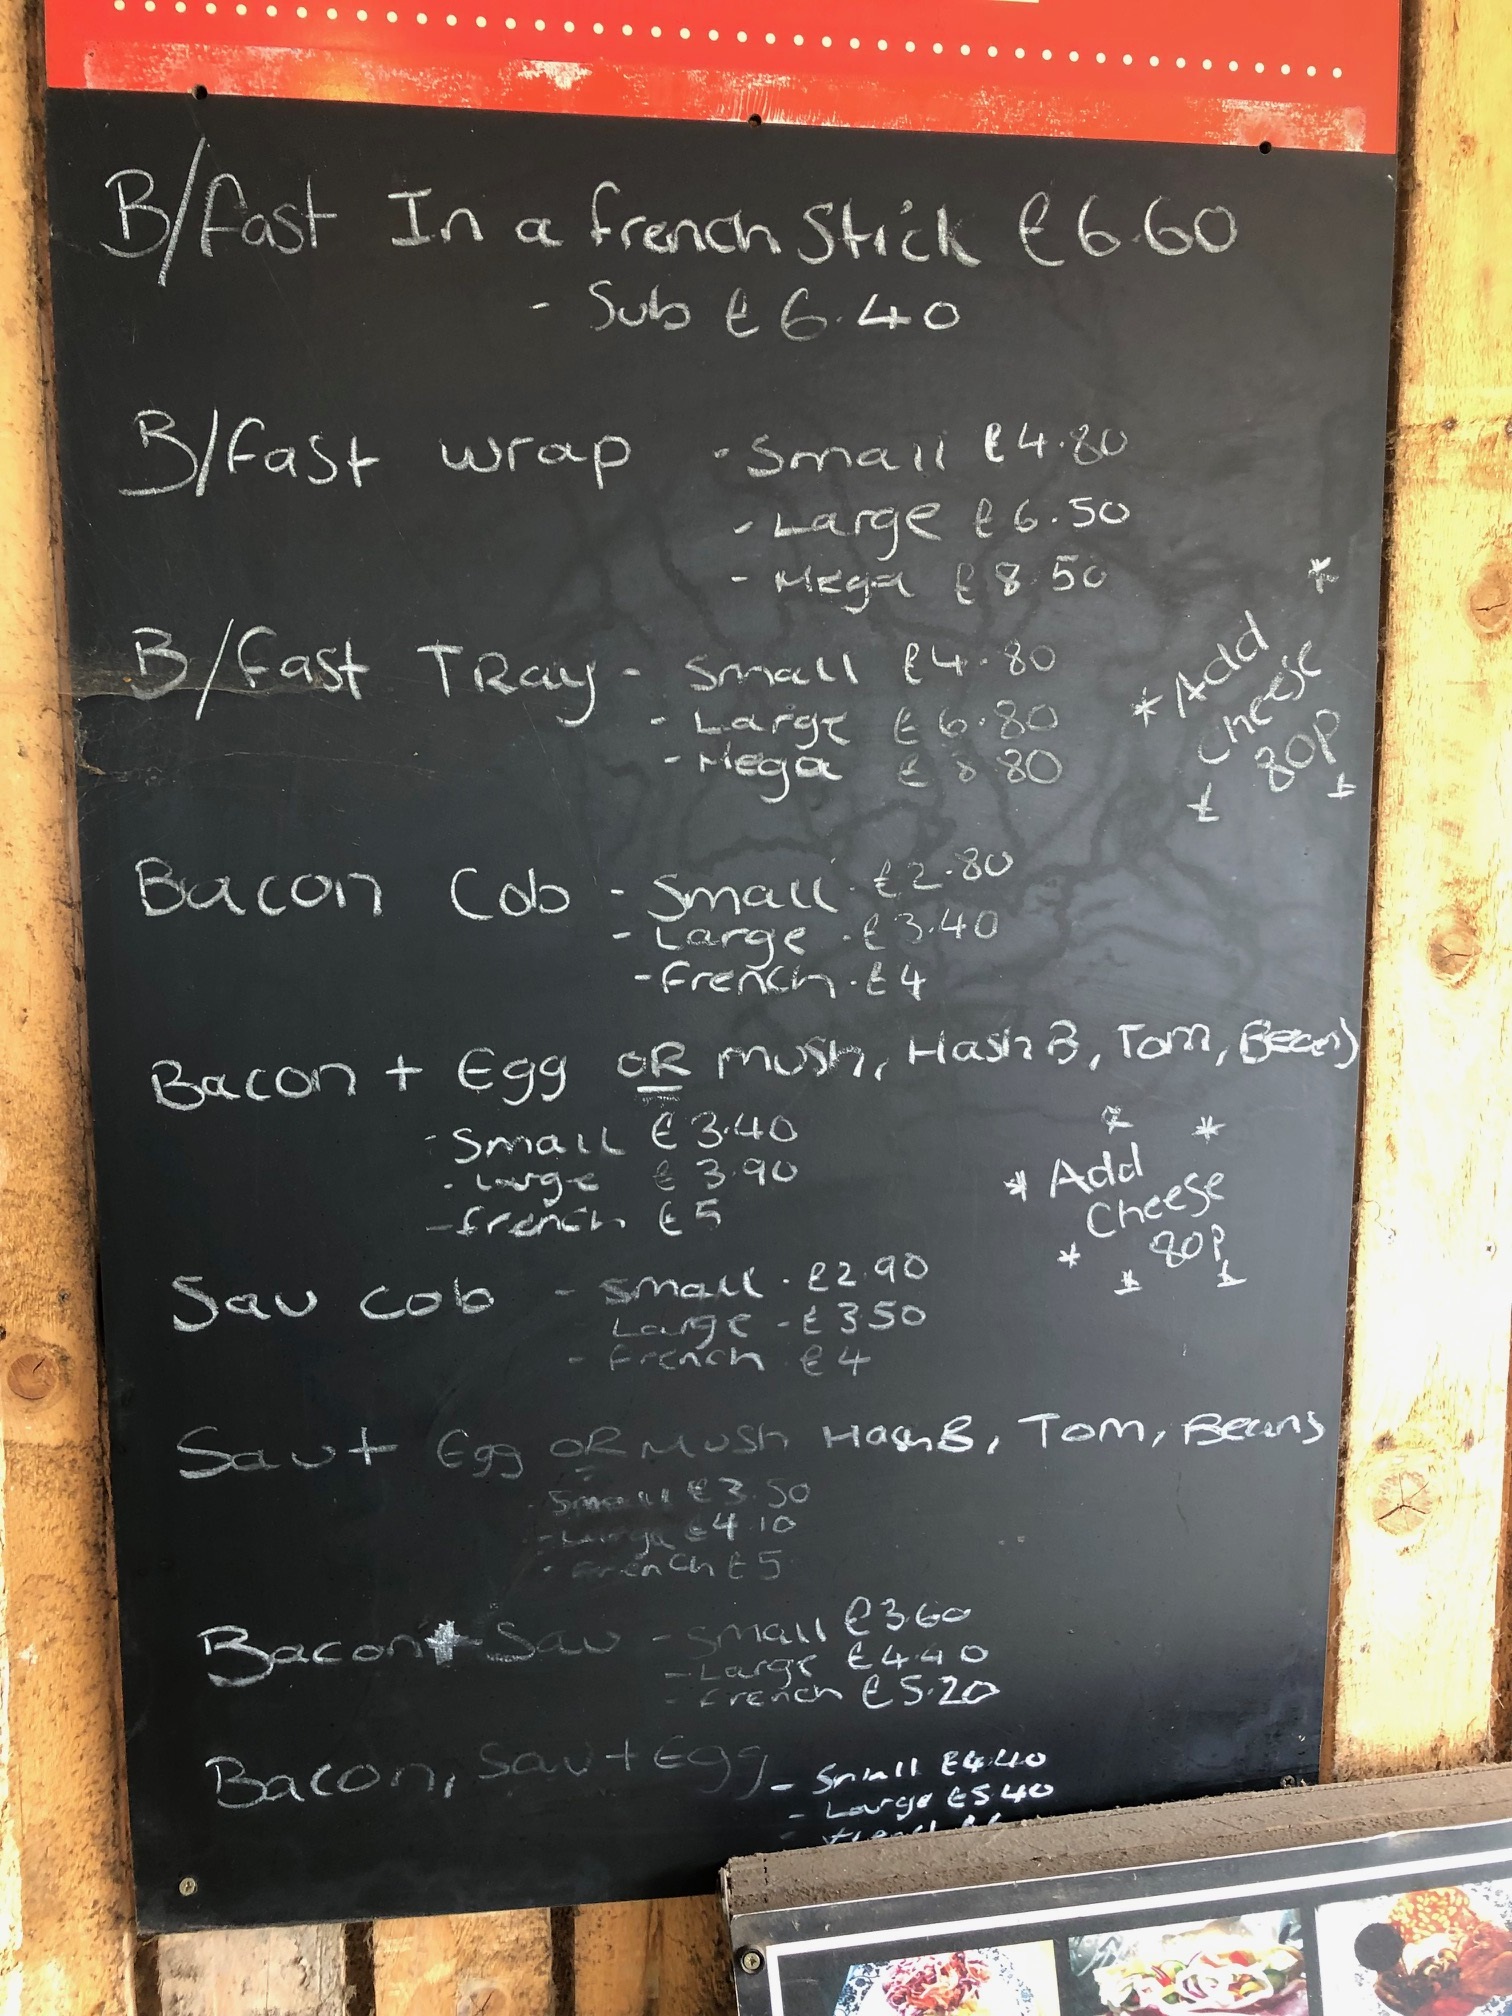 B/fast In a french Stick £6.60
- Sub £6.40
B/fast wrap - Small £4.80
- Large £6.50
- Mega £8.50
B/fast TRay - Small £4.80
- Large £6.80
- Mega £8.80
* Add *
Cheese
80p
Bacon Cob - Small - £2.80
- Large - £3.40
- french - £4
Bacon + Egg OR Mush, Hash B, Tom, Beans
- Small £3.40
- Large £3.90
- french £5
* Add *
Cheese
80p
Sau Cob - Small - £2.90
Large - £3.50
- french £4
Sau + Egg OR Mush Hash B, Tom, Beans
- Small £3.50
- Large £4.10
- french £5
Bacon + Sau - Small £3.60
- Large £4.40
- french £5.20
Bacon, Sau + Egg - Small £4.40
- Large £5.40
- french